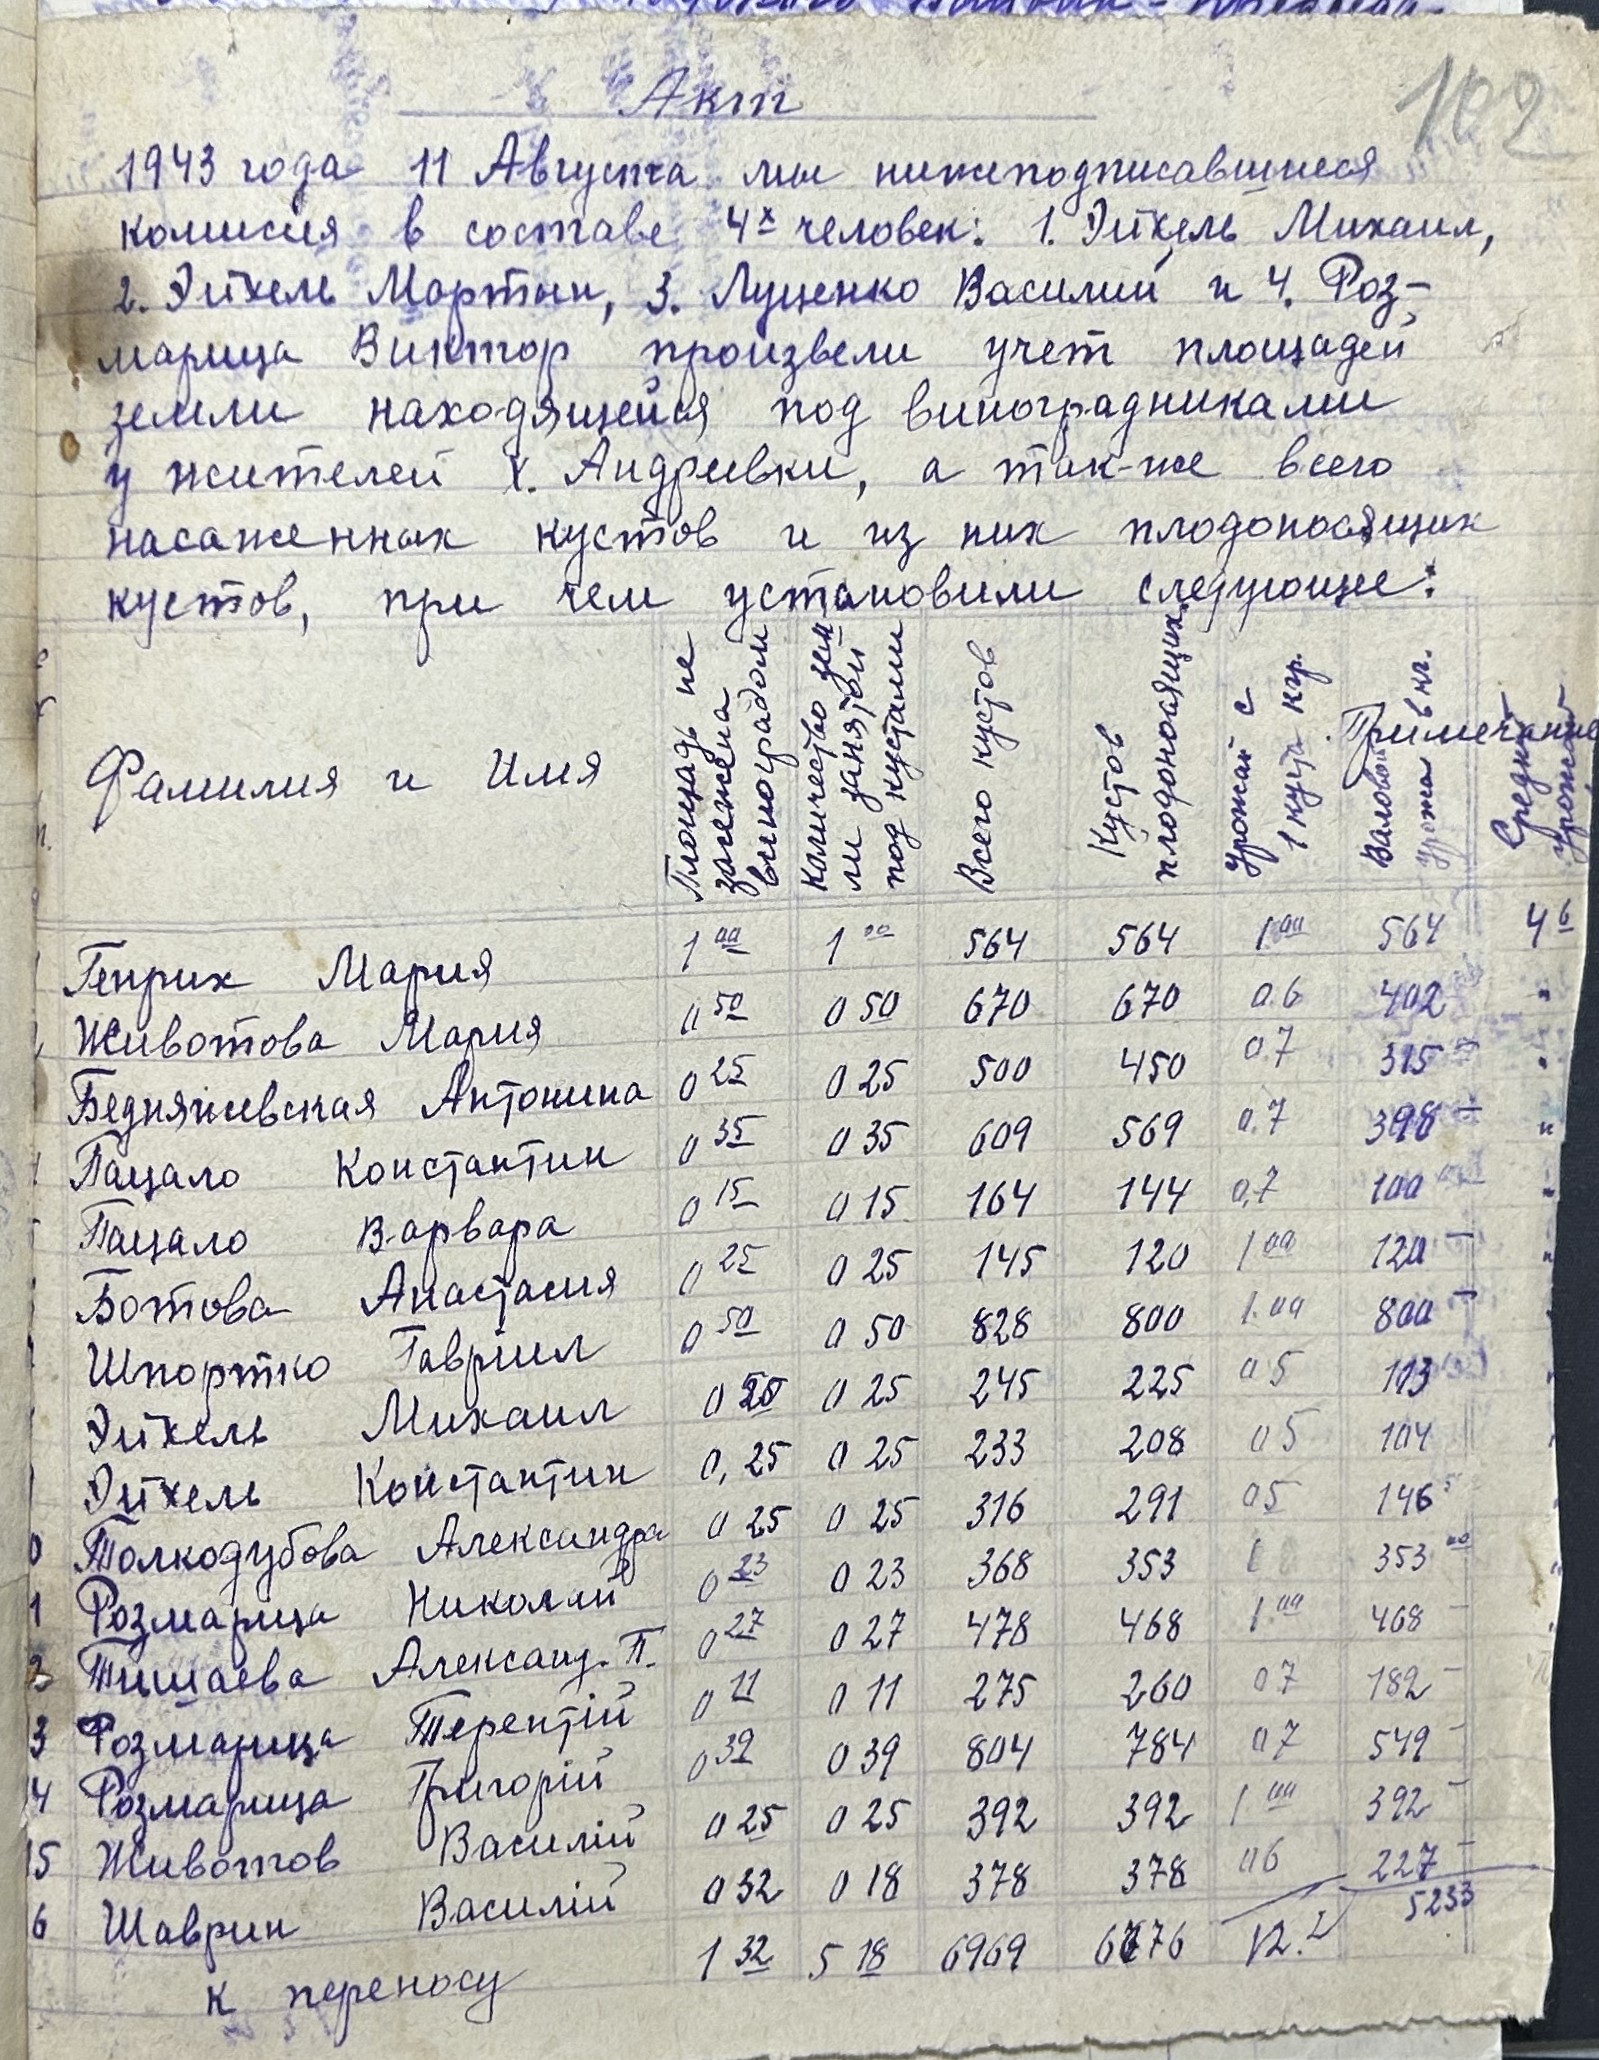 102
Акт
1943 года 11 Августа мы нижеподписавшиеся
комисия в составе 4х человек: 1. Эйхель Михаил,
2. Эйхель Мартын, 3. Луценко Василий и 4. Роз-
марица Виктор произвели учет площадей
земли находящейся под виноградниками
у жителей х. Андреевки, а так-же всего
насаженных кустов и из них плодоносящих
кустов, при чем установили следующие:
Фамилия и Имя Площадь не засежена виноградом Количество земли занятой под кустами Всего кустов Кустов плодоносящих Урожай с 1 куста кгр. Примечание Валовой урожа в кг. Средний урожай
Генрих Мария 1 00 1 00 564 564 1 00 564 4 6
Животова Мария 0 50 0 50 670 670 0.6 402 "
Бедняжевская Антонина 0 25 0 25 500 450 0.7 315 "
Пацало Константин 0 35 0 35 609 569 0.7 398 "
Пацало Варвара 0 15 0 15 164 144 0,7 100 "
Ботова Анастасия 0 25 0 25 145 120 1 00 120 "
Шпортко Гавріил 0 50 0 50 828 800 1.00 800
Эйхель Михаил 0 25 0 25 245 225 0 5 113
Эйхель Константин 0,25 0 25 233 208 0 5 104
0 Толкодубова Александра 0 25 0 25 316 291 0 5 146 5
1 Розмарица Николай 0 23 0 23 368 353 1 353 00
2 Тишаева Александ. П. 0 27 0 27 478 468 1.00 468
3 Розмарица Терентій 0 11 0 11 275 260 0 7 182
4 Розмарица Григорій 0 39 0 39 804 784 0 7 549
15 Животов Василій 0 25 0 25 392 392 1 00 392
6 Шаврин Василій 0 32 0 18 378 378 0 6 227
к переносу 1 32 5 18 6969 6676 5233